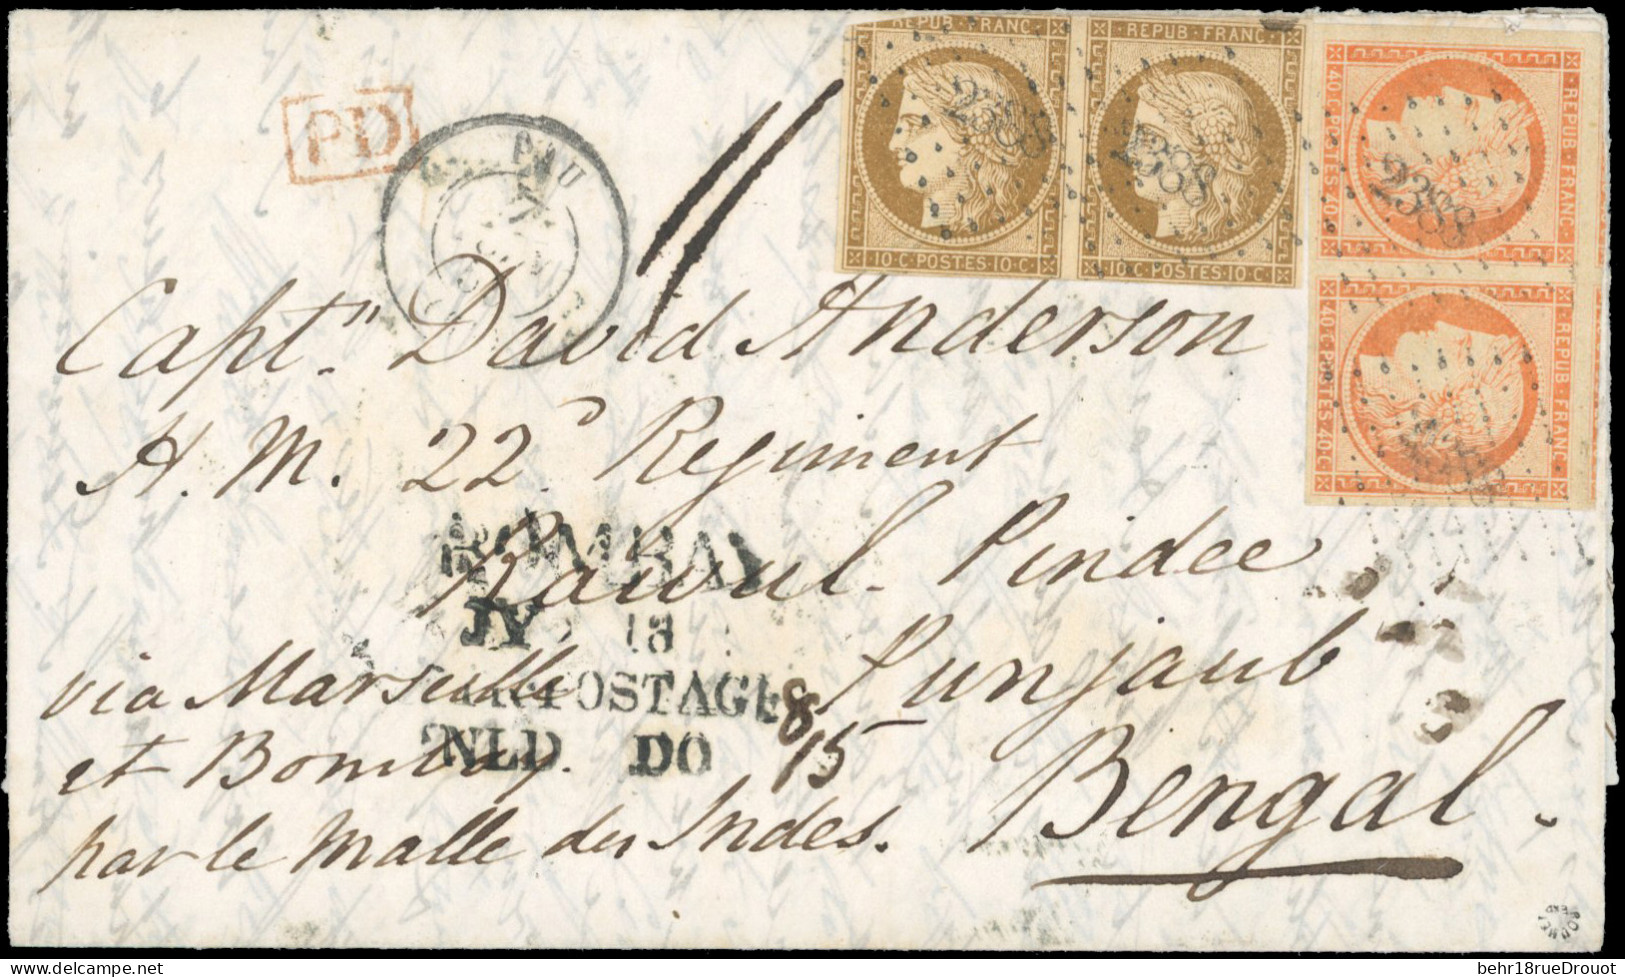 REPUB FRANC
· REPUB · FRANC ·
10 · C · POSTES · 10 · C ·
10 · C · POSTES · 10 · C ·
40 · C · POSTES · 40 · C
· REPUB · FRANC ·
40 · C · POSTES · 40 · C
· REPUB · FRANC ·
2388
2388
2388
PD
PAU
Capt" David Anderson
H. M. 22d Regiment
Rawul. Pindee
Punjaub
Bengal.
via Marseille
et Bombay.
par le Malle des Indes.
BOMBAY
JY 18
POSTAGE
INLD DO
8
15
behr18rueDrouot